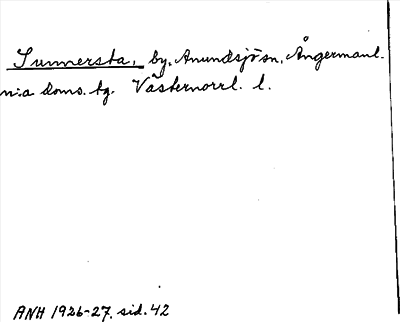 Sunnersta, by, Anundsjö sn, Ångermanl.
n:a doms. tg. Västernorrl. l.
ANH 1926-27. sid. 42